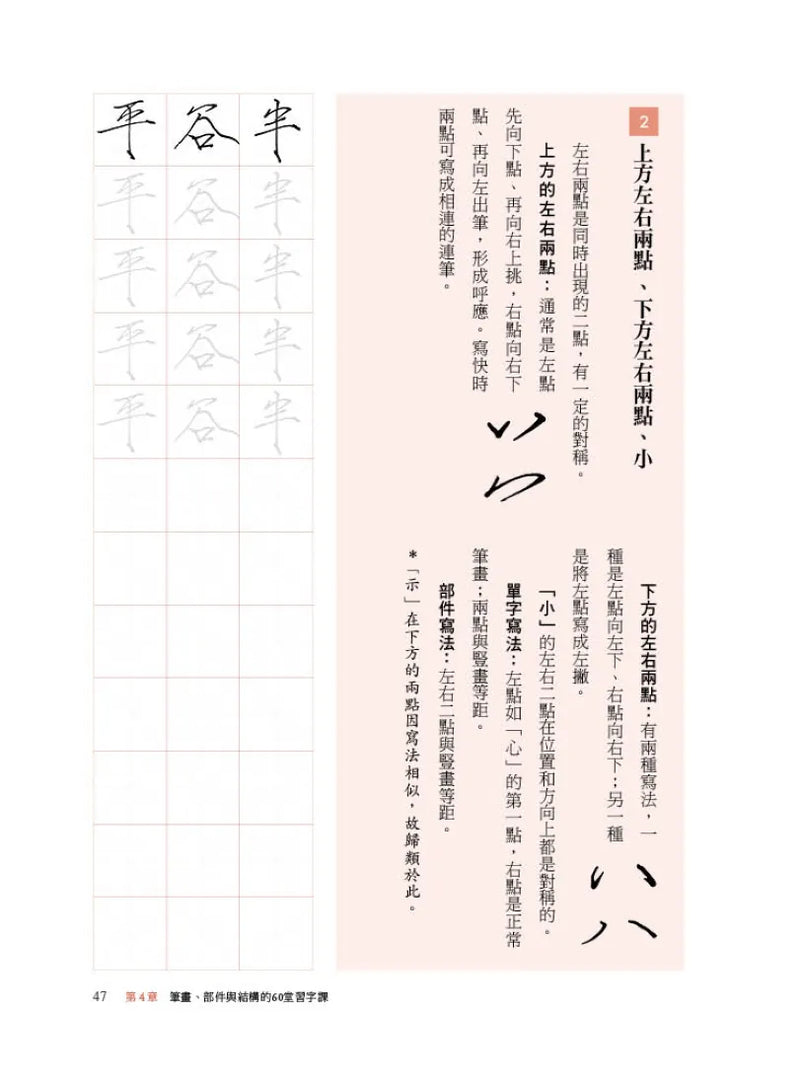 2
上方左右兩點、下方左右兩點、小
左右兩點是同時出現的二點，有一定的對稱。
上方的左右兩點：通常是左點
先向下點、再向右上挑，右點向右下
點、再向左出筆，形成呼應。寫快時
兩點可寫成相連的連筆。
下方的左右兩點：有兩種寫法，一
種是左點向左下、右點向右下；另一種
是將左點寫成左撇。
「小」的左右二點在位置和方向上都是對稱的。
單字寫法：左點如「心」的第一點，右點是正常
筆畫；兩點與豎畫等距。
部件寫法：左右二點與豎畫等距。
*「示」在下方的兩點因寫法相似，故歸類於此。
半
半
半
半
半
谷
谷
谷
谷
谷
平
平
平
平
平
47 第4章 筆畫、部件與結構的60堂習字課